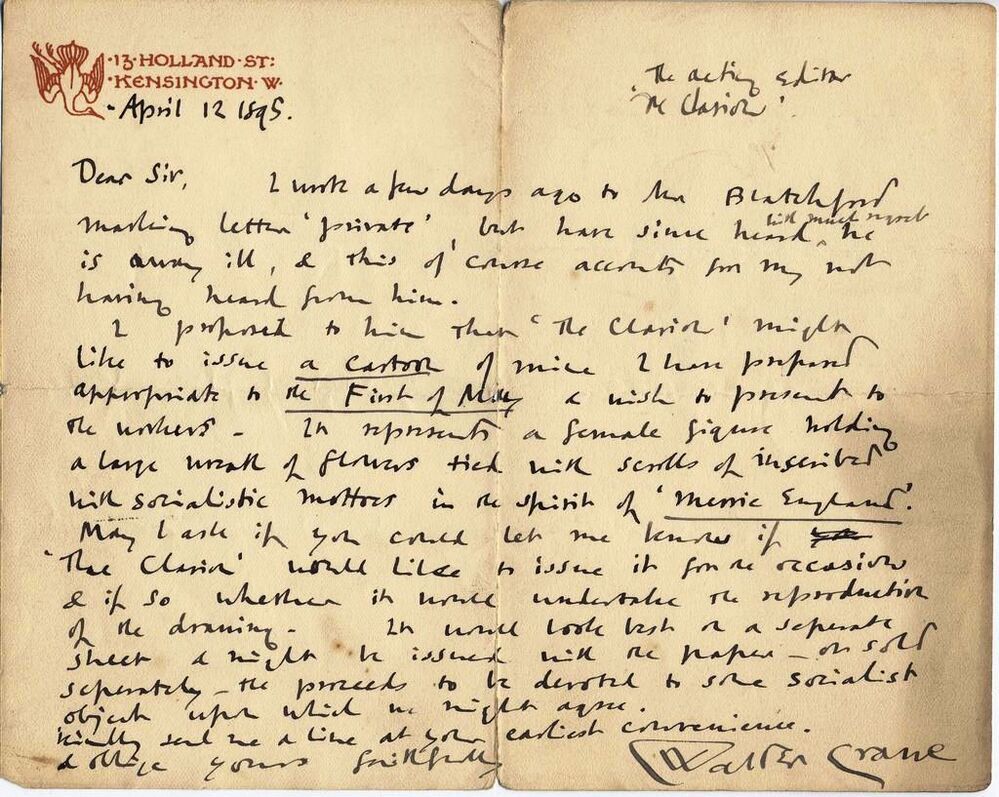 ·13·HOLLAND·ST:
·KENSINGTON·W·
April 12 1895.
The acting Editor
'The Clarion'.
Dear Sir, I wrote a few days ago to Mr Blatchford
marking letter 'private', but have since heard with much regret he
is away ill, & this of course accounts for my not
having heard from him.
I proposed to him that 'The Clarion' might
like to issue a cartoon of mine I have prepared
appropriate to the First of May & wish to present to
the workers - It represents a female figure holding
a large wreath of flowers tied with scrolls of inscribed
with socialistic mottoes in the spirit of 'Merrie England'.
May I ask if you could let me know if
'The Clarion' would like to issue it for the occasion
& if so whether it would undertake the reproduction
of the drawing - It would look best on a seperate
sheet & might be issued with the paper - or sold
seperately - the proceeds to be devoted to some socialist
object upon which we might agree.
Kindly send me a line at your earliest convenience.
& oblige yours faithfully
Walter Crane